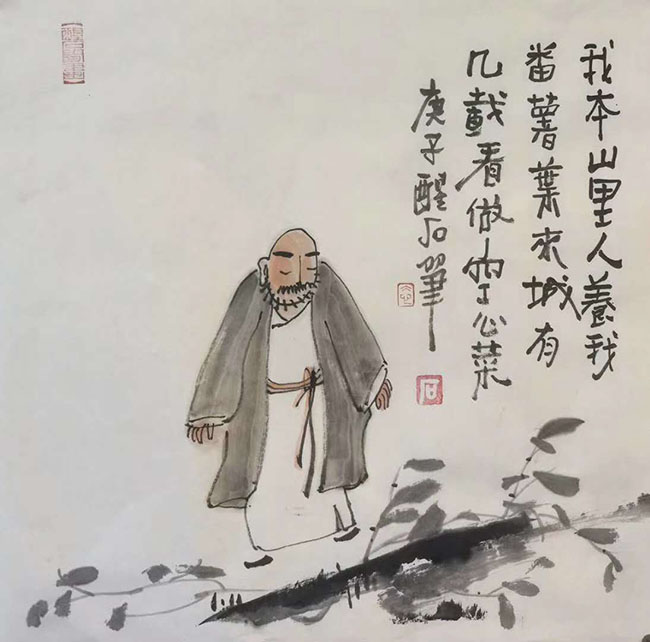 我本山里人養我
番薯葉來城有
几載看做空心菜
庚子醒石筆
石